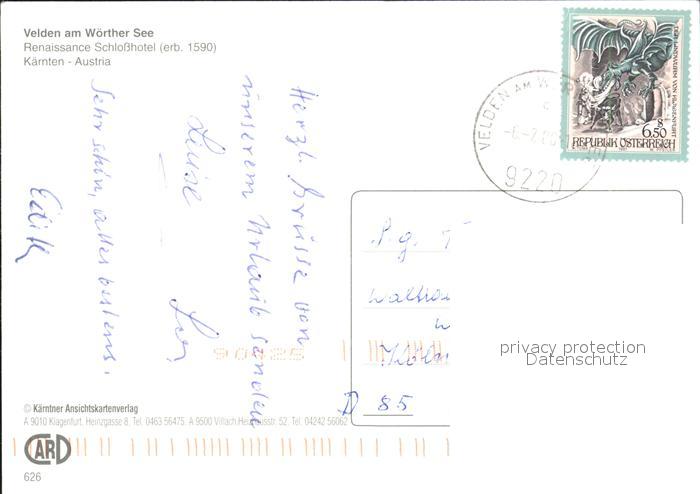 Velden am Wörther See
Renaissance Schloßhotel (erb. 1590)
Kärnten - Austria
Herzl. Grüsse von
unserem Urlaub senden
Luise
Sehr schön, alles bestens.
Edith
VELDEN AM
9220
DER LINDWURM VON KLAGENFURT
S
6.50
REPUBLIK ÖSTERREICH
Köln
D 85
privacy protection
Datenschutz
© Kärntner Ansichtskartenverlag
A 9010 Klagenfurt, Heinzgasse 8, Tel. 0463 56475, A 9500 Villach, 52, Tel. 04242 56062
CARD
626